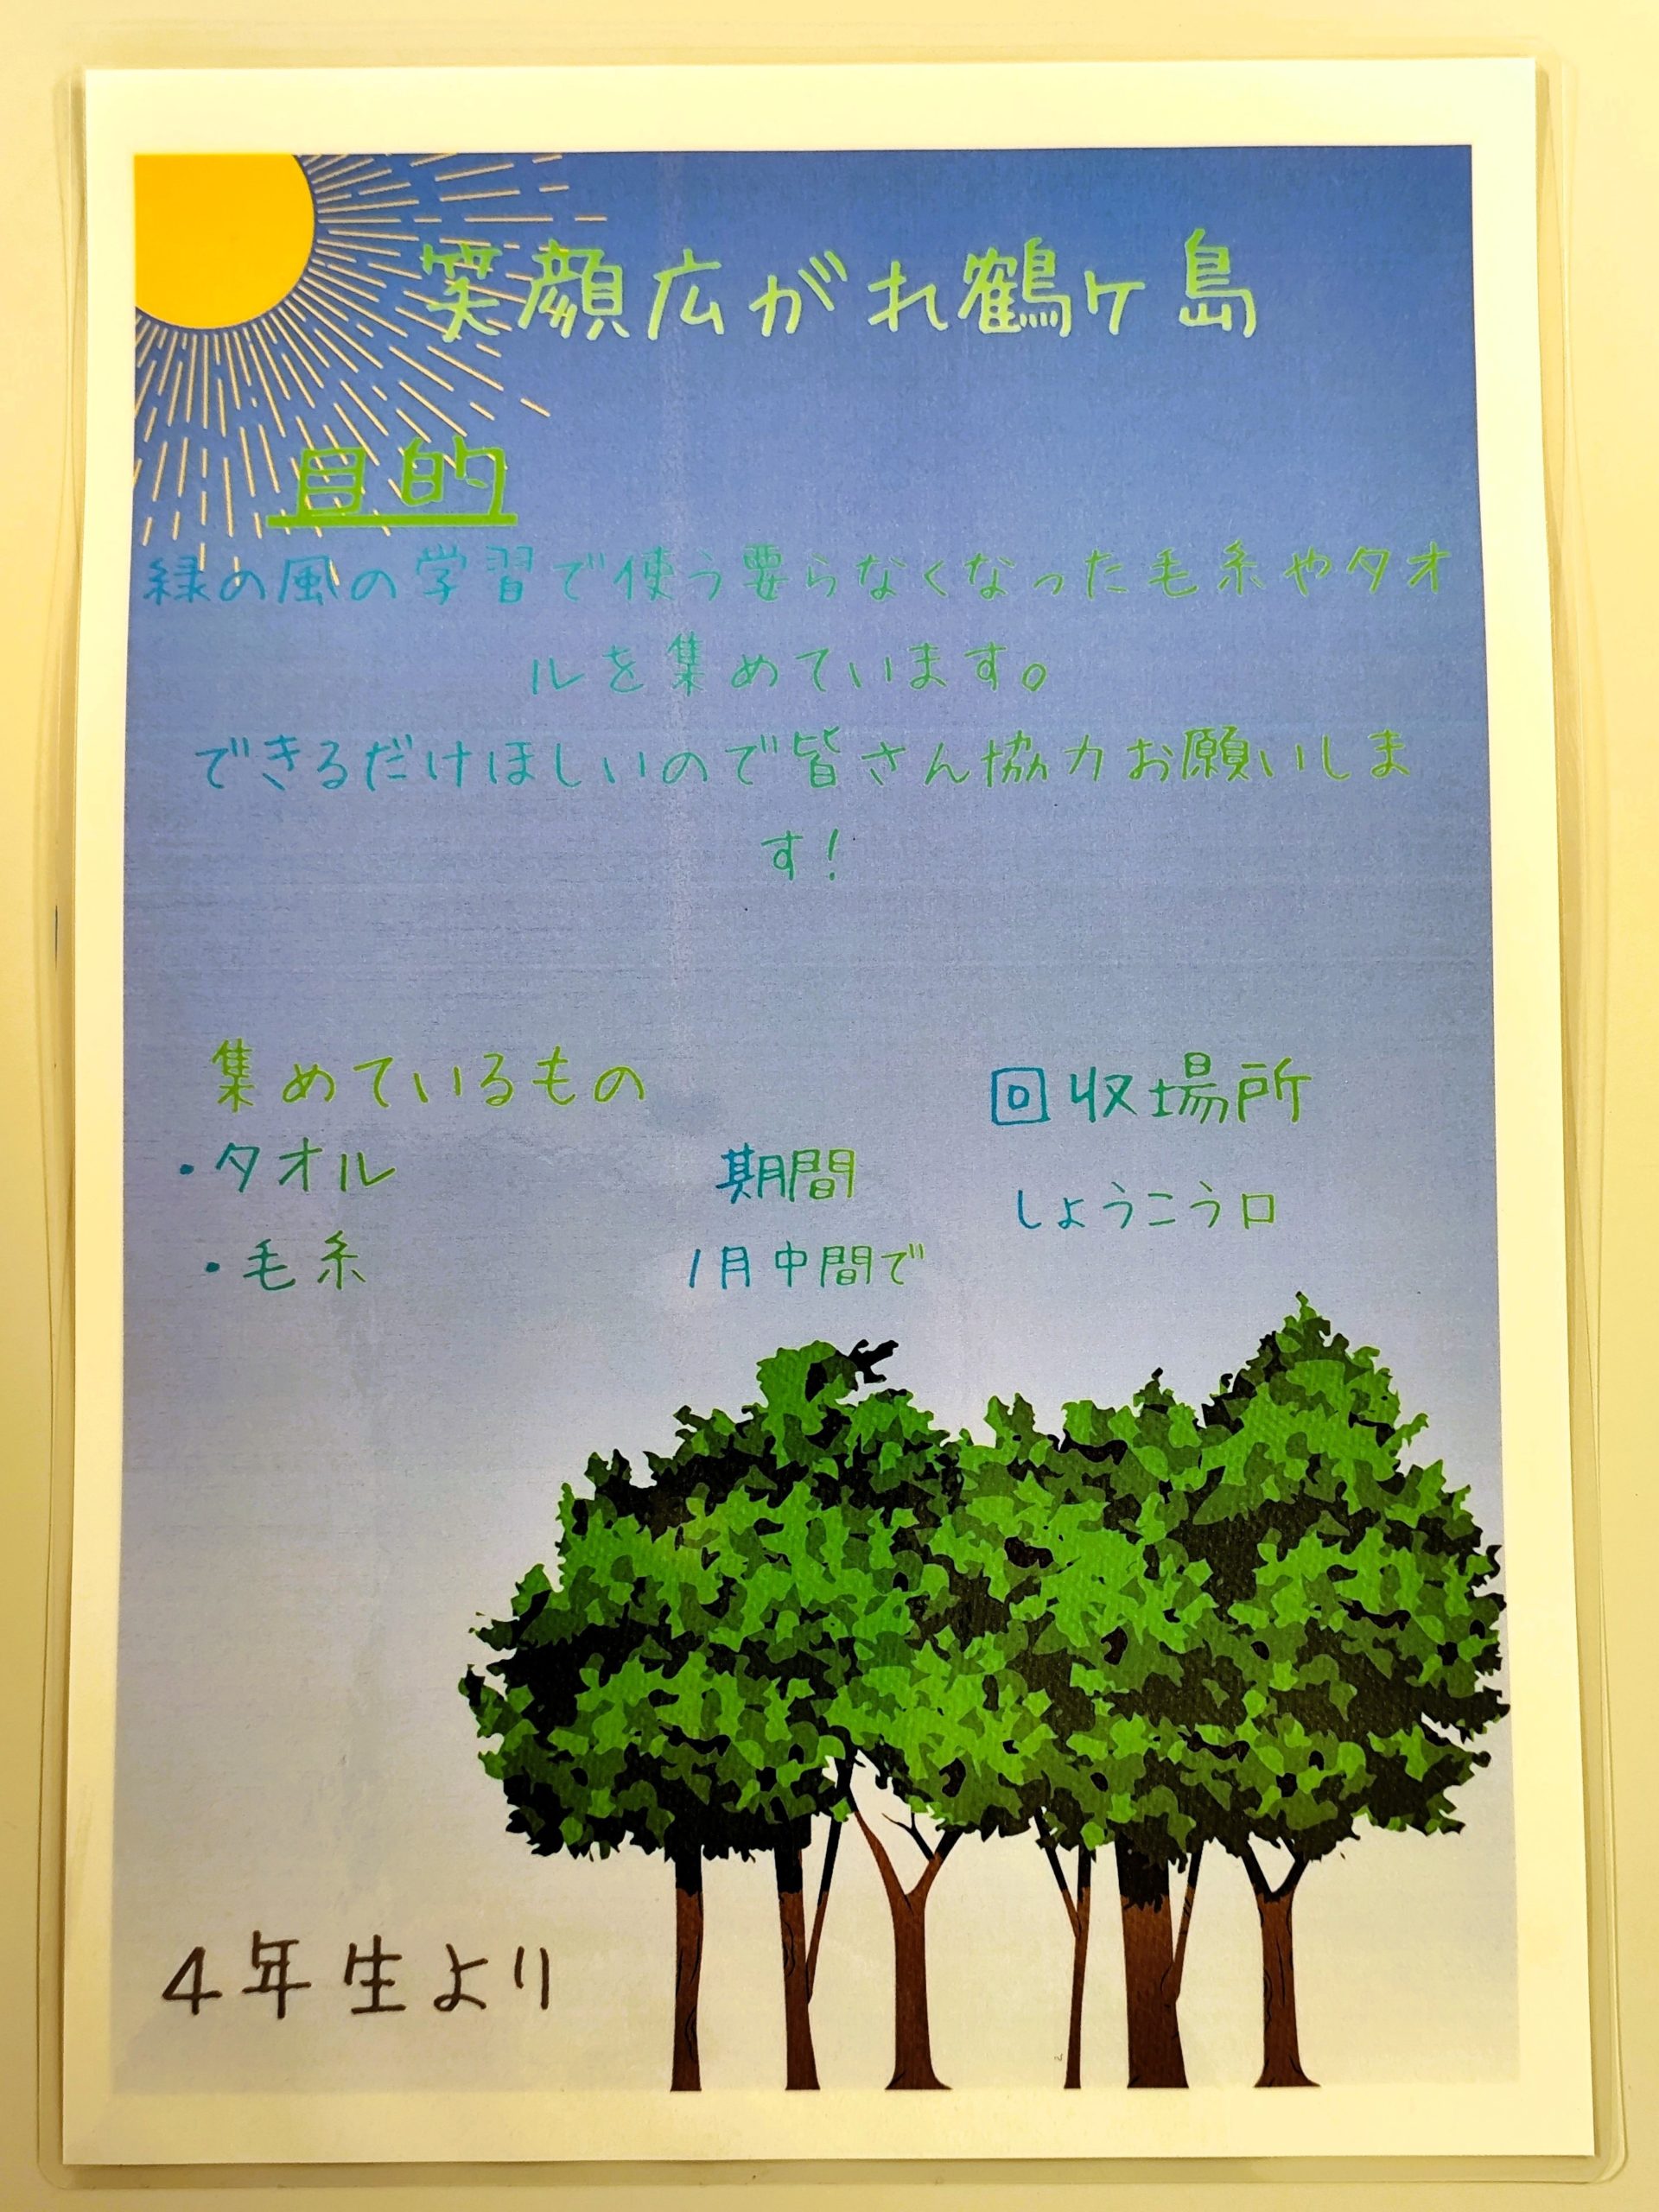 笑顔広がれ鶴ヶ島
目的
緑の風の学習で使う要らなくなった毛糸やタオ
ルを集めています。
できるだけほしいので皆さん協力お願いしま
す!
集めているもの
・タオル
・毛糸
期間
1月中間で
回収場所
しょうこう口
4年生より